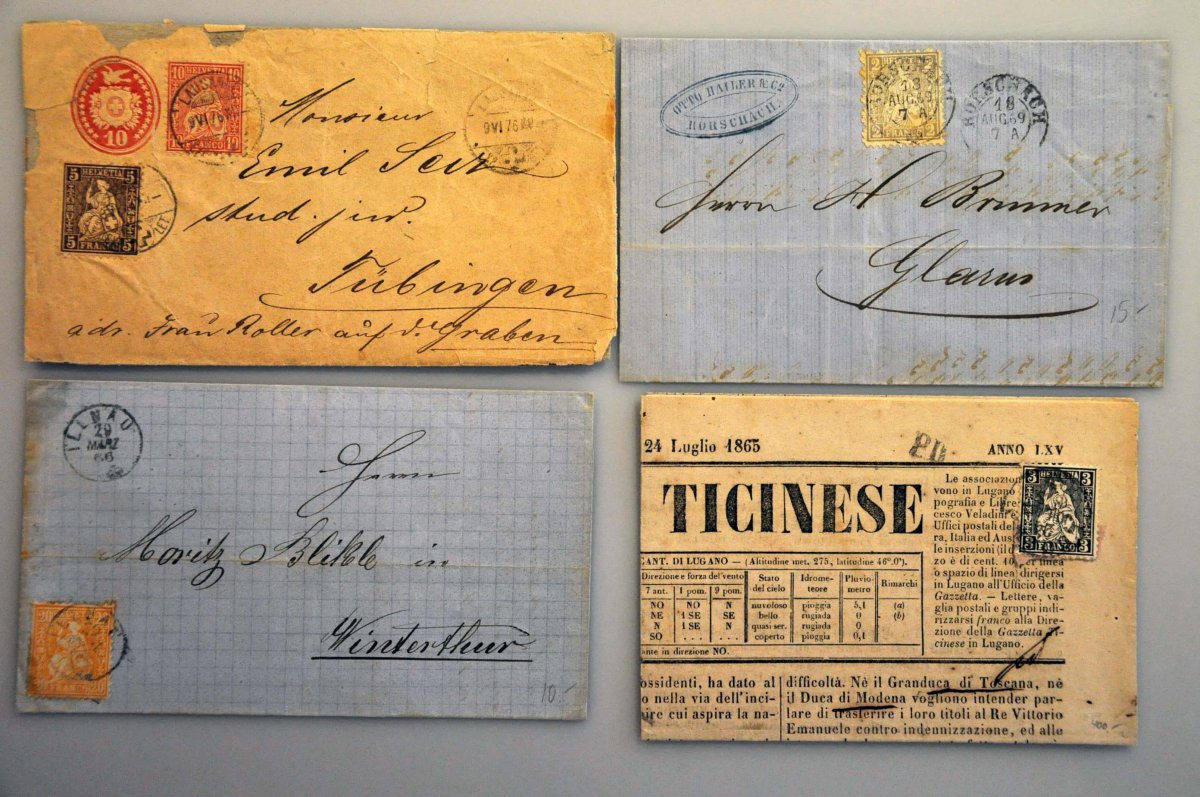 10
10 HELVETIA 10
10 FRANCO 10
LAUSANNE
9 VI 76
9 VI 76
5 HELVETIA 5
5 FRANCO 5
Monsieur
Emil Seiz
stud. jur.
Tübingen
adr. Frau Roller auf d. Graben
OTTO HAILER & Cº
RORSCHACH.
2 2
2 FRANCO 2
RORSCHACH
18
AUG 69
7 A
RORSCHACH
18
AUG 69
7 A
Herrn H Brunner
Glarus
15.-
ILLNAU
29
MÄRZ
66
Herrn
Moritz Blikle in
Winterthur
ILLNAU
10.-
24 Luglio 1865
PD
ANNO LXV
TICINESE
3 HELVETIA 3
3 FRANCO 3
Le associazion
vono in Lugano
pografia e Libre
cesco Veladini e
Uffici postali del
ra, Italia ed Aus
le inserzioni (il d
zo è di cent. 10
o spazio di linea dirigersi
in Lugano all'Ufficio della
Gazzetta. — Lettere, va-
glia postali e gruppi indi-
rizzarsi franco alla Dire-
zione della Gazzetta Ti-
cinese in Lugano.
CANT. DI LUGANO — (Altitudine met. 275, latitudine 46º.0').
Direzione e forza del vento Stato del cielo Idrome- teore Pluvio- metro Rimarchi
7 ant. 1 pom. 9 pom.
NO NO N nuvoloso pioggia 5,1 (a)
NE 1 SE SE bello rugiada 0 (b)
N 1 SE N quasi ser. rugiada 0
SO . . . . . . . coperto pioggia 0,1
ante in direzione NO.
ossidenti, ha dato al
o nella via dell'inci-
ire cui aspira la na-
difficoltà. Nè il Granduca di Toscana, nè
il Duca di Modena vogliono intender par-
lare di trasferire i loro titoli al Re Vittorio
Emanuele contro indennizzazione, ed alle
400.-